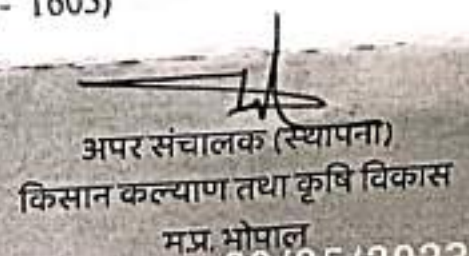 1605)
अपर संचालक (स्थापना)
किसान कल्याण तथा कृषि विकास
म.प्र. भोपाल